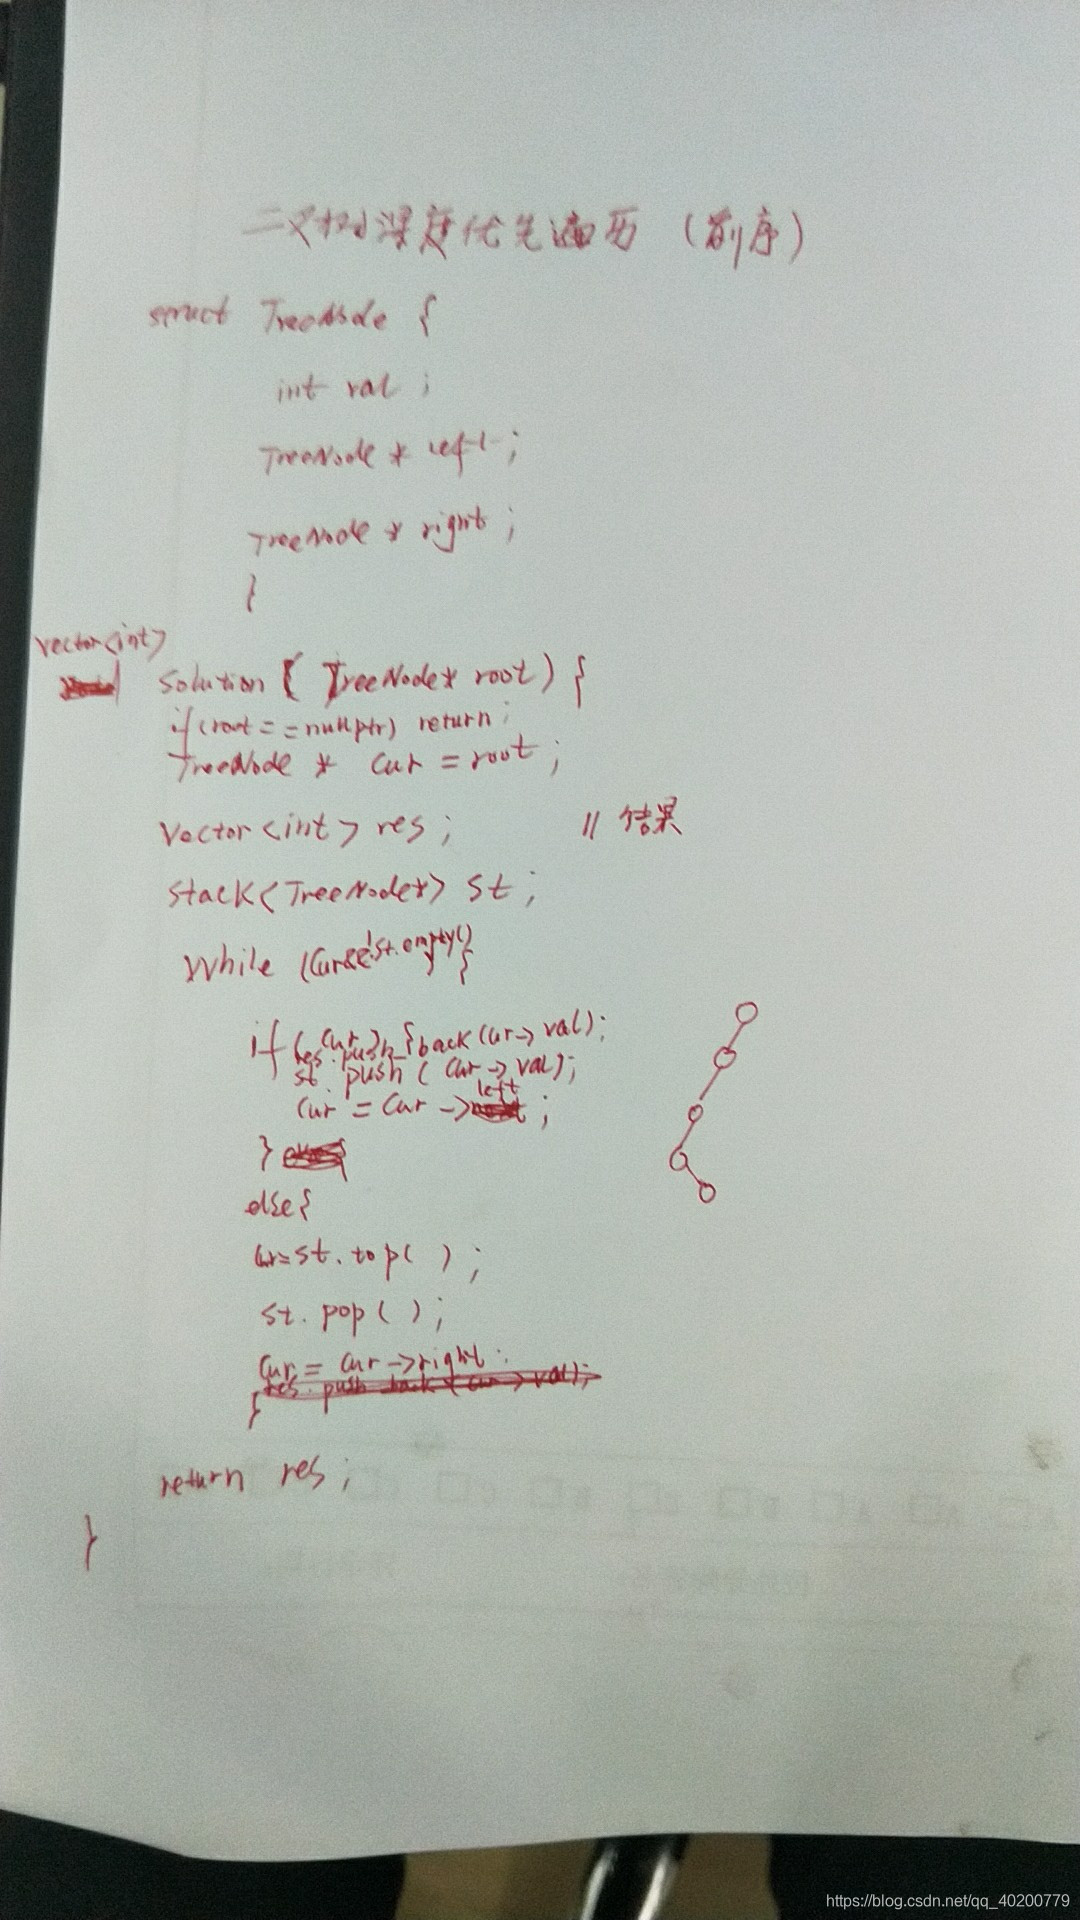 二叉树深度优先遍历（前序）
struct TreeNode {
int val ;
TreeNode * left ;
TreeNode * right ;
}
vector<int>
Solution ( TreeNode* root ) {
if (root == nullptr) return ;
TreeNode * cur = root ;
vector<int> res ; // 结果
stack<TreeNode*> st ;
while (cur&&!st.empty()) {
if (cur) {
res.push_back(cur->val);
st.push(cur->val);
cur = cur->left ;
}
else{
cur=st.top( ) ;
st.pop( ) ;
cur = cur->right ;
res.push_back(cur->val);
}
return res ;
}
https://blog.csdn.net/qq_40200779